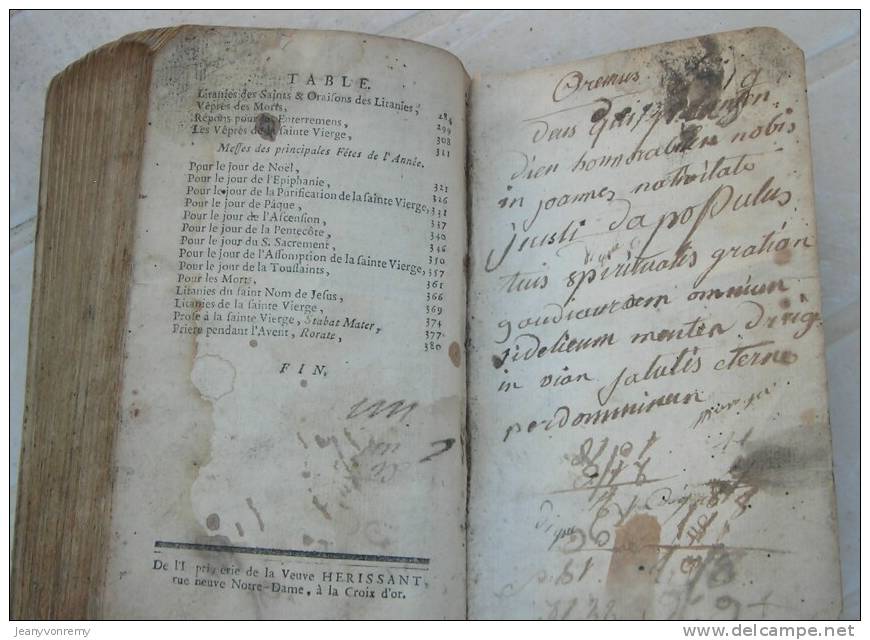 TABLE.
Litanies des Saints & Oraisons des Litanies, 284
Vêpres des Morts, 299
Répons pour les Enterremens, 308
Les Vêpres de la sainte Vierge, 311
Messes des principales Fêtes de l'Année.
Pour le jour de Noel, 321
Pour le jour de l'Epiphanie, 326
Pour le jour de la Purification de la sainte Vierge, 331
Pour le jour de Pâque, 337
Pour le jour de l'Ascension, 340
Pour le jour de la Pentecôte, 346
Pour le jour du S. Sacrement, 350
Pour le jour de l'Assomption de la sainte Vierge, 357
Pour le jour de la Toussaints, 361
Pour les Morts, 366
Litanies du saint Nom de Jesus, 369
Litanies de la sainte Vierge, 374
Prose à la sainte Vierge, Stabat Mater, 377
Priere pendant l'Avent, Rorate, 380
FIN.
De l'I pri erie de la Veuve HERISSANT,
rue neuve Notre-Dame, à la Croix d'or.
Oremus
Deus qui
dien honnorabilen nobis
in joannes nativitate
jeusti Da populus
tuis spiritualis gratian
gaudiaurom omniun
fidelieum menten dirig
in vian salutis eterne
perdomminun
jeanyvonremy
http://www.delcampe.net